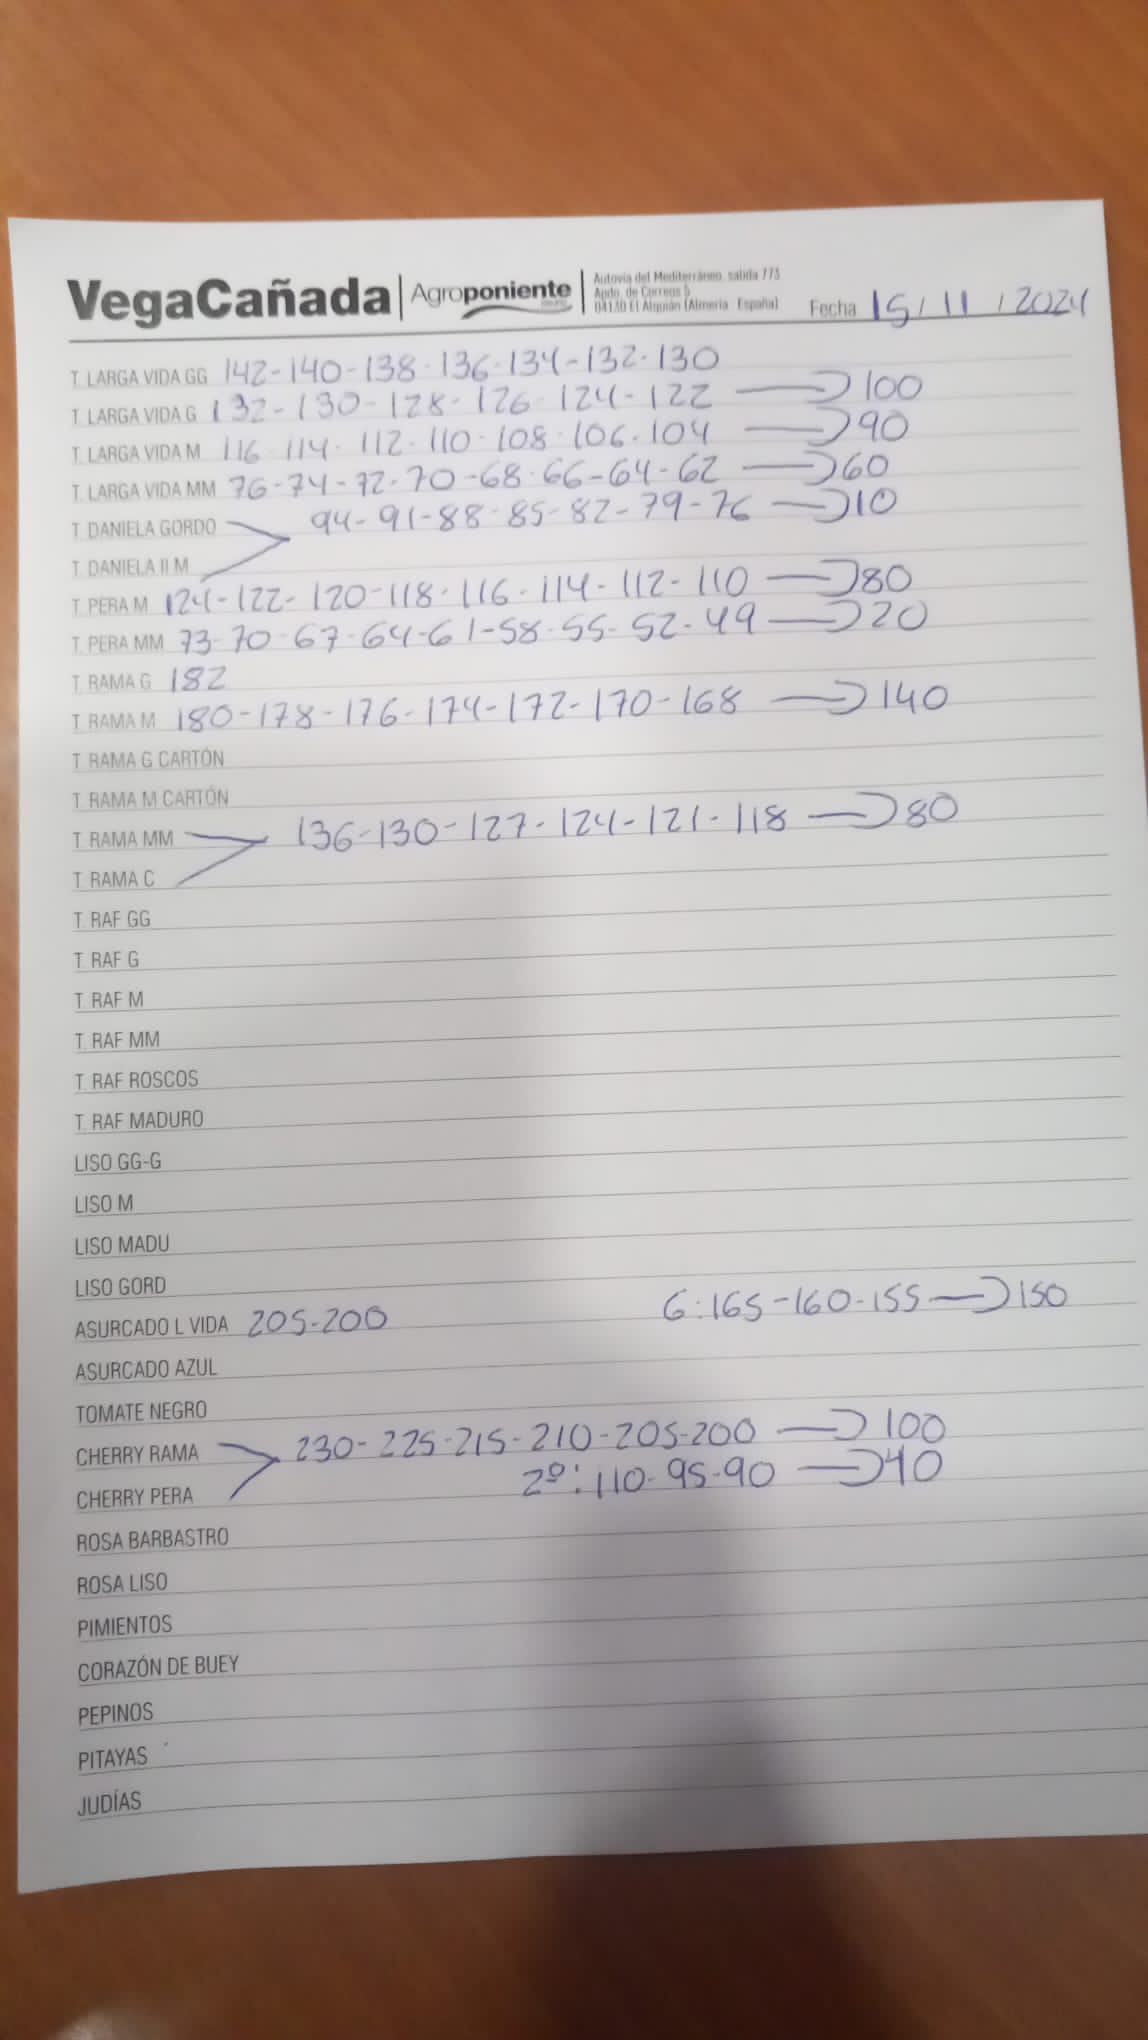 VegaCañada | Agroponiente
Autovía del Mediterráneo, salida 773
Apdo. de Correos 5
04130 El Alquián (Almería - España)
Fecha 15/11/2024
T. LARGA VIDA GG 142-140-138-136-134-132-130
T. LARGA VIDA G 132-130-128-126-124-122 → 100
T. LARGA VIDA M 116-114-112-110-108-106-104 → 90
T. LARGA VIDA MM 76-74-72-70-68-66-64-62 → 60
T. DANIELA GORDO 94-91-88-85-82-79-76 → 10
T. DANIELA II M
T. PERA M 124-122-120-118-116-114-112-110 → 80
T. PERA MM 73-70-67-64-61-58-55-52-49 → 20
T. RAMA G 182
T. RAMA M 180-178-176-174-172-170-168 → 140
T. RAMA G CARTÓN
T. RAMA M CARTÓN
T. RAMA MM 136-130-127-124-121-118 → 80
T. RAMA C
T. RAF GG
T. RAF G
T. RAF M
T. RAF MM
T. RAF ROSCOS
T. RAF MADURO
LISO GG-G
LISO M
LISO MADU
LISO GORD
ASURCADO L VIDA 205-200 G:165-160-155 → 150
ASURCADO AZUL
TOMATE NEGRO
CHERRY RAMA 230-225-215-210-205-200 → 100
CHERRY PERA 2º: 110-95-90 → 40
ROSA BARBASTRO
ROSA LISO
PIMIENTOS
CORAZÓN DE BUEY
PEPINOS
PITAYAS
JUDÍAS